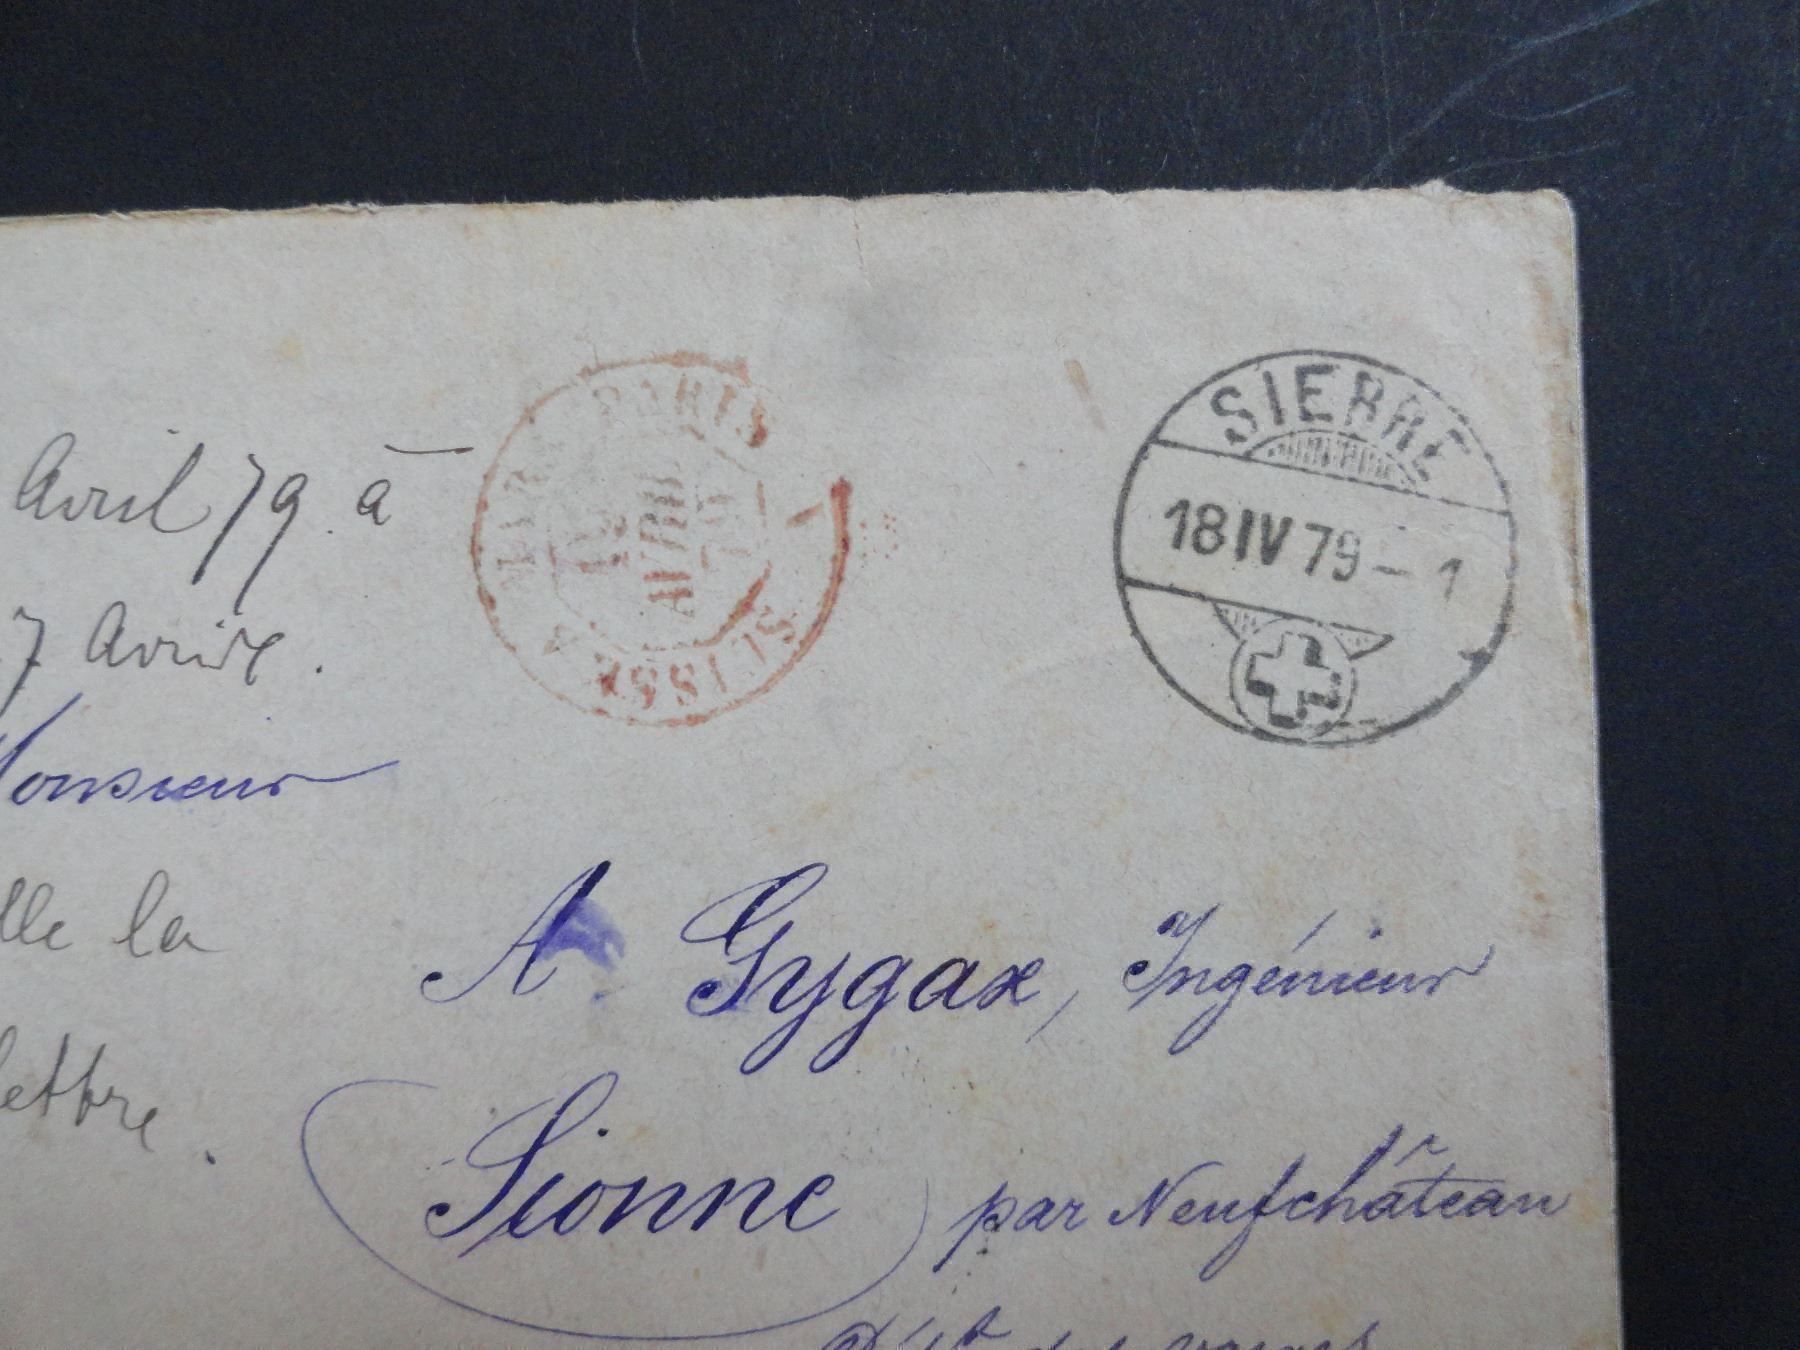 SIERRE
18 IV 79 – 1
PARIS
AVRIL
79
SUISSE
Avril 79. à
7
Monsieur
la
A Gygax, Ingénieur
lettre.
Sionne par Neufchâteau